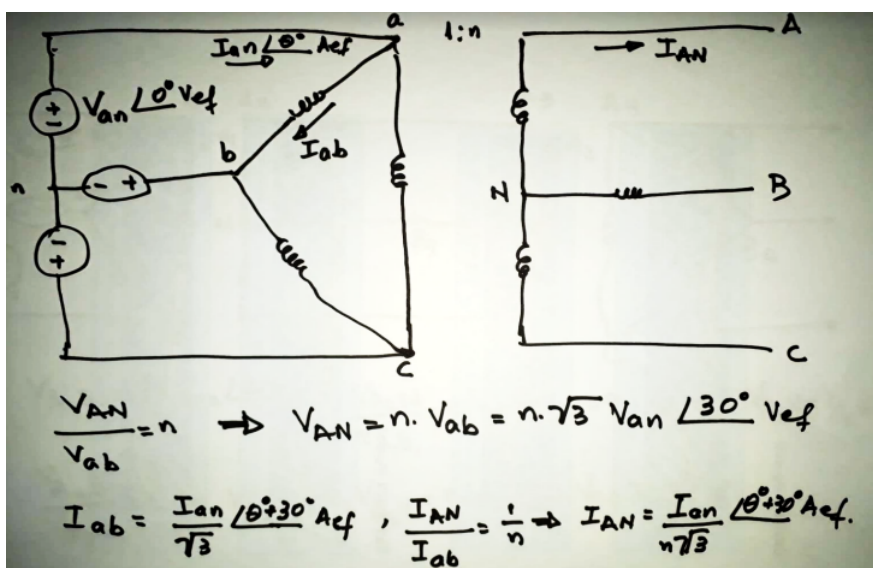 a
1:n
A
Ian ∠θ° Aef
IAN
+
-
Van ∠0° Vef
b
Iab
n
- +
N
B
-
+
c
C
VAN/Vab = n ⇒ VAN = n. Vab = n.√3 Van ∠30° Vef
Iab = Ian/√3 ∠θ°+30° Aef , IAN/Iab = 1/n ⇒ IAN = Ian/n√3 ∠θ°+30° Aef.